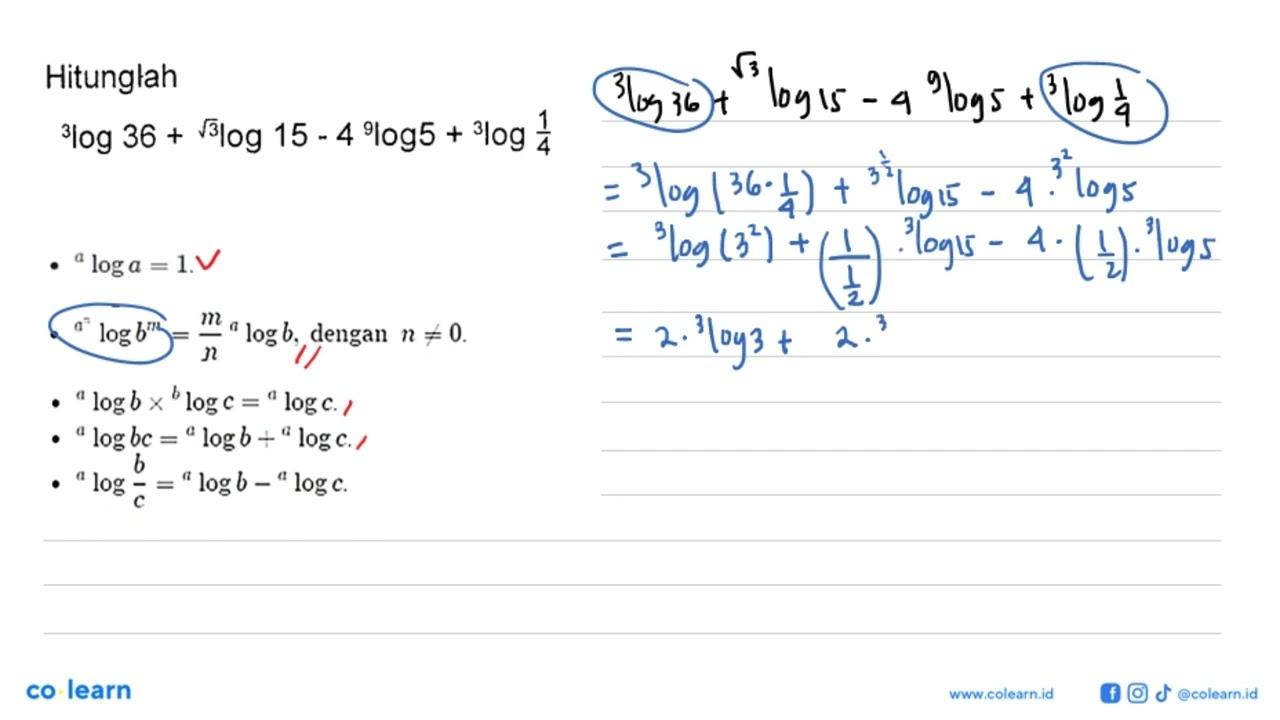 Hitunglah
³log 36 + √3log 15 - 4 ⁹log5 + ³log 1/4
• ᵃ log a = 1.
• ᵃⁿ log bᵐ = m/n ᵃ log b, dengan n ≠ 0.
• ᵃ log b × ᵇ log c = ᵃ log c.
• ᵃ log bc = ᵃ log b + ᵃ log c.
• ᵃ log b/c = ᵃ log b − ᵃ log c.
³log 36 + √3 log 15 − 4 ⁹log 5 + ³log 1/4
= ³log (36 · 1/4) + 3^(1/2) log 15 − 4 · 3² log 5
= ³log (3²) + (1/(1/2)) · ³log 15 − 4 · (1/2) · ³log 5
= 2 · ³log 3 + 2 · ³
co learn
www.colearn.id
@colearn.id